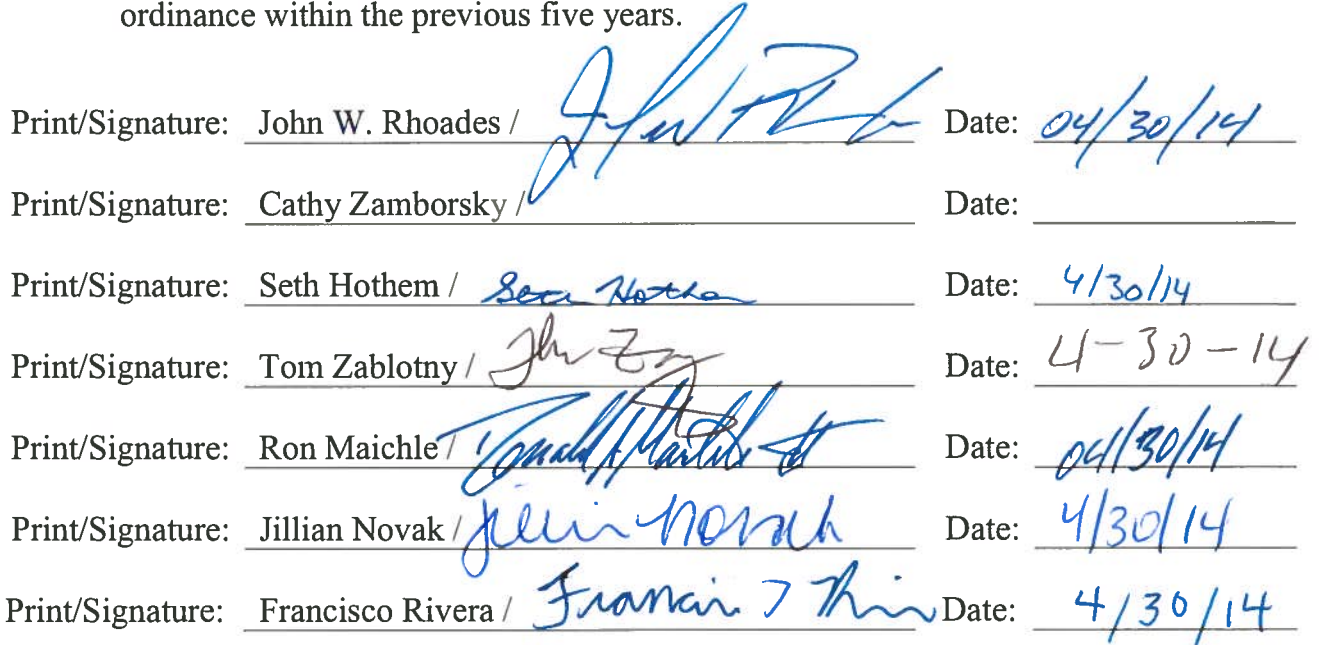 ordinance within the previous five years.
Print/Signature: John W. Rhoades / Date: 04/30/14
Print/Signature: Cathy Zamborsky / Date:
Print/Signature: Seth Hothem / Seth Hothem Date: 4/30/14
Print/Signature: Tom Zablotny / Date: 4-30-14
Print/Signature: Ron Maichle / Date: 04/30/14
Print/Signature: Jillian Novak / Jillian Novak Date: 4/30/14
Print/Signature: Francisco Rivera / Date: 4/30/14